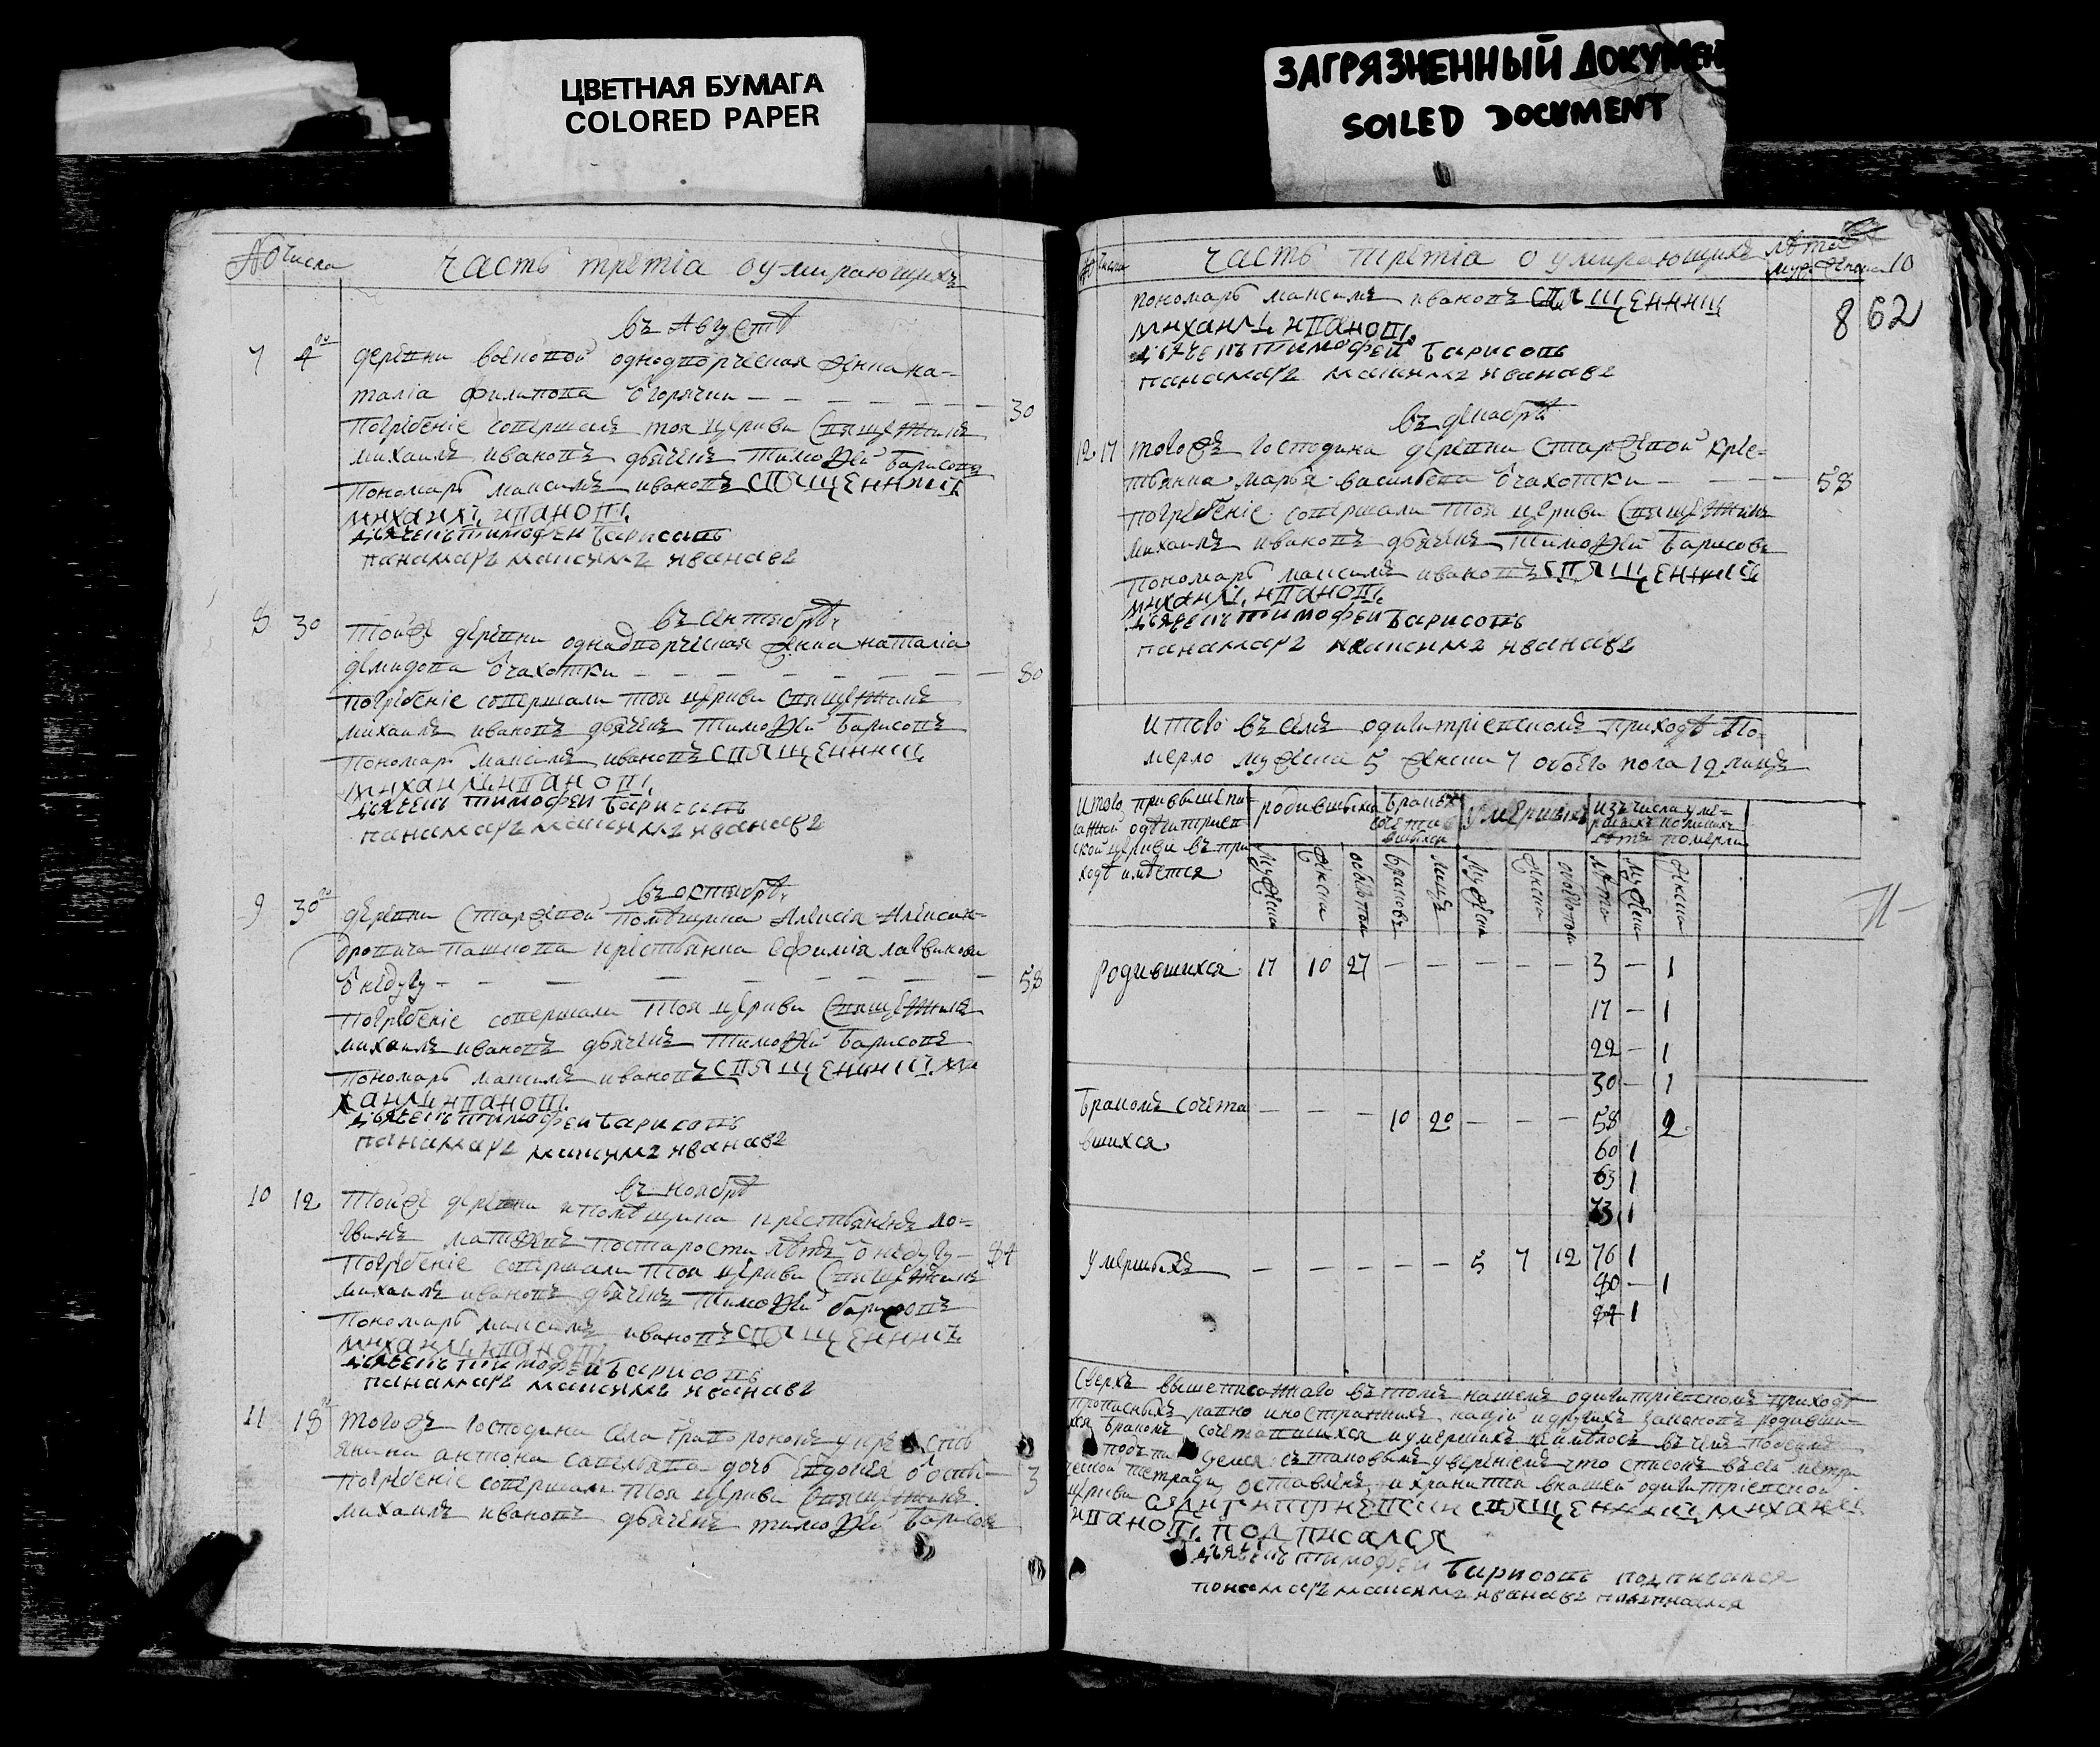 ЦВЕТНАЯ БУМАГА
COLORED PAPER
ЗАГРЯЗНЕННЫЙ ДОКУМЕН
SOILED DOCUMENT
№ числа Часть третіа оумирающихъ
въ Августѣ
7 4 деревни однодворческая жена на-
таліа филипова ѿ горячки 30
Погребеніе совершали тоя церкви Священникъ
михаилъ ивановъ дьячекъ Тимоѳей Барисовъ
Пономарь максимъ ивановъ Священникъ
михаилъ ивановъ
дьячекъ тимофеи Барисовъ
панамарь максимъ иванавъ
въ сентябрѣ
8 30 Тойже деревни однадворческая жена наталіа
демидова ѿ чахотки 80
Погребеніе совершали тоя церкви Священникъ
михаилъ ивановъ дьячекъ Тимоѳей Барисовъ
Пономарь максимъ ивановъ Священникъ
михаилъ ивановъ
дьячекъ тимофеи Барисовъ
панамарь максимъ иванавъ
въ октябрѣ
9 30 деревни Старжевой помѣщика Алексѣя Алексан-
дровича Пашкова крестьянка Ефимія
ѿ недугу 58
Погребеніе совершали Тоя церкви Священникъ
михаилъ ивановъ дьячекъ Тимоѳей Барисовъ
Пономарь максимъ ивановъ Священникъ ми
хаилъ ивановъ
дьячекъ тимофеи Барисовъ
панамарь максимъ иванавъ
въ ноябрѣ
10 12 Тойже деревни и помѣщика крестьянинъ ло-
гвинъ матвеевъ по старости лѣтъ ѿ недугу 84
Погребеніе совершали тоя церкви Священникъ
михаилъ ивановъ дьячекъ Тимоѳей барисовъ
Пономарь максимъ ивановъ Священникъ
михаилъ ивановъ
дьячекъ тимофеи Барисовъ
панамарь максимъ иванавъ
11 18 Тогожъ Господина села крестъ
янина антона савельева дочь Евдокея ѿ оспы 3
Погребеніе совершали тоя церкви Священникъ
михаилъ ивановъ дьячекъ тимоѳей Барисовъ
№ числа Часть третіа о умирающихъ лѣта
муж женск 10
862
пономарь максимъ ивановъ Священникъ
михаилъ ивановъ
дьячекъ тимофеи Барисовъ
панамарь максимъ иванавъ
въ декабрѣ
12 17 тогожъ Господина деревни Старжевой кре-
стьянка марья васильева ѿ чахотки 58
погребеніе совершали Тоя церкви Священникъ
михаилъ ивановъ дьячекъ Тимоѳей Барисовъ
Пономарь максимъ ивановъ Священникъ
михаилъ ивановъ
дьячекъ тимофеи Барисовъ
панамарь максимъ иванавъ
Итого въ семъ одигитріевскомъ приходѣ по-
мерло мужеска 5 женска 7 обоего пола 12 лицъ
Итого при вышепи-
санной одигитриев
ской церкви въ при
ходѣ имѣется
родившихся
бракомъ сочетавшихся
умершихъ
изъ числа уме-
ршихъ
лѣтъ померли
мужеска женска обоего пола браковъ лицъ мужеска женска обоего пола лѣта мужеска женска
родившихся 17 10 27 — — — — — 3 — 1
17 — 1
22 — 1
30 — 1
Бракомъ сочета — — — 10 20 — — — 58 2
вшихся
60 1
63 1
73 1
умершихъ — — — — — 5 7 12 76 1
80 — 1
84 1
Сверхъ вышеписаннаго въ томъ нашемъ одигитріевскомъ приходѣ
прописныхъ равно иностранныхъ націй и другихъ законовъ родивши-
хся бракомъ сочетавшихся и умершихъ не имѣлось въ чемъ
съ таковымъ увереніемъ что списокъ въ сей метри
ческой тетради оставленъ и хранится в нашей одигитріевской
церкви священникъ михаилъ
ивановъ подписался
дьячекъ тимофеи Барисовъ подписался
понамарь максимъ иванавъ подписался